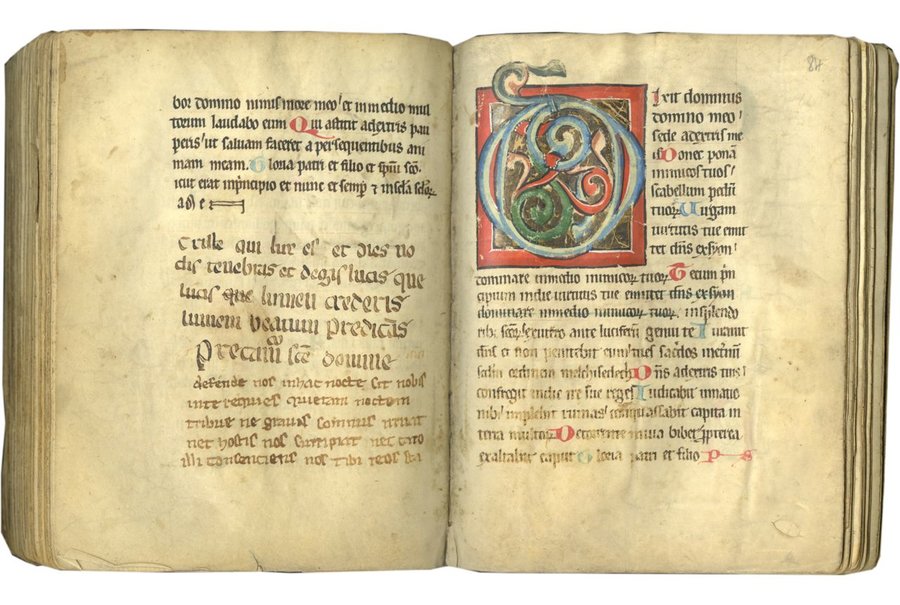 bor domino nimis in ore meo et in medio mul
torum laudabo eum Qui astitit a dextris pau
peris ut saluam faceret a persequentibus ani
mam meam. Gloria patri et filio et spiui sco
icut erat in pncipio et nunc et semp et in scla sclor
am e
Criste qui lux es et dies no
ctis tenebras et degis lucis que
lucis que lumen crederis
lumem beatum predicans
Precamur sce domine
defende nos in hac nocte sit nobis
inte requies quietam noctem
tribue ne gravis somnus
nec hostis nos surripiat nec caro
illi consenciens nos tibi reos sta
84
Dixit dominus
domino meo
sede a dextris me
is Donec ponam
inimicos tuos
scabellum pedum
tuor Uirgam
uirtutis tue emit
tet dns ex syon
dominare in medio inimicor tuor Tecum pn
cipium in die uirtutis tue emittet dns ex syon
dominare in medio inimicor tuor in splendo
rib scor ex utero ante luciferum genui te Iurauit
dns et non penitebit eum tu es sacdos in eternum
scdm ordinem melchisedech Dns a dextris tuis
confregit in die ire sue reges Iudicabit in natio
nib implebit ruinas conquassabit capita in
terra multor De torrente in uia bibet ppterea
exaltabit caput Gloria patri et filio ps